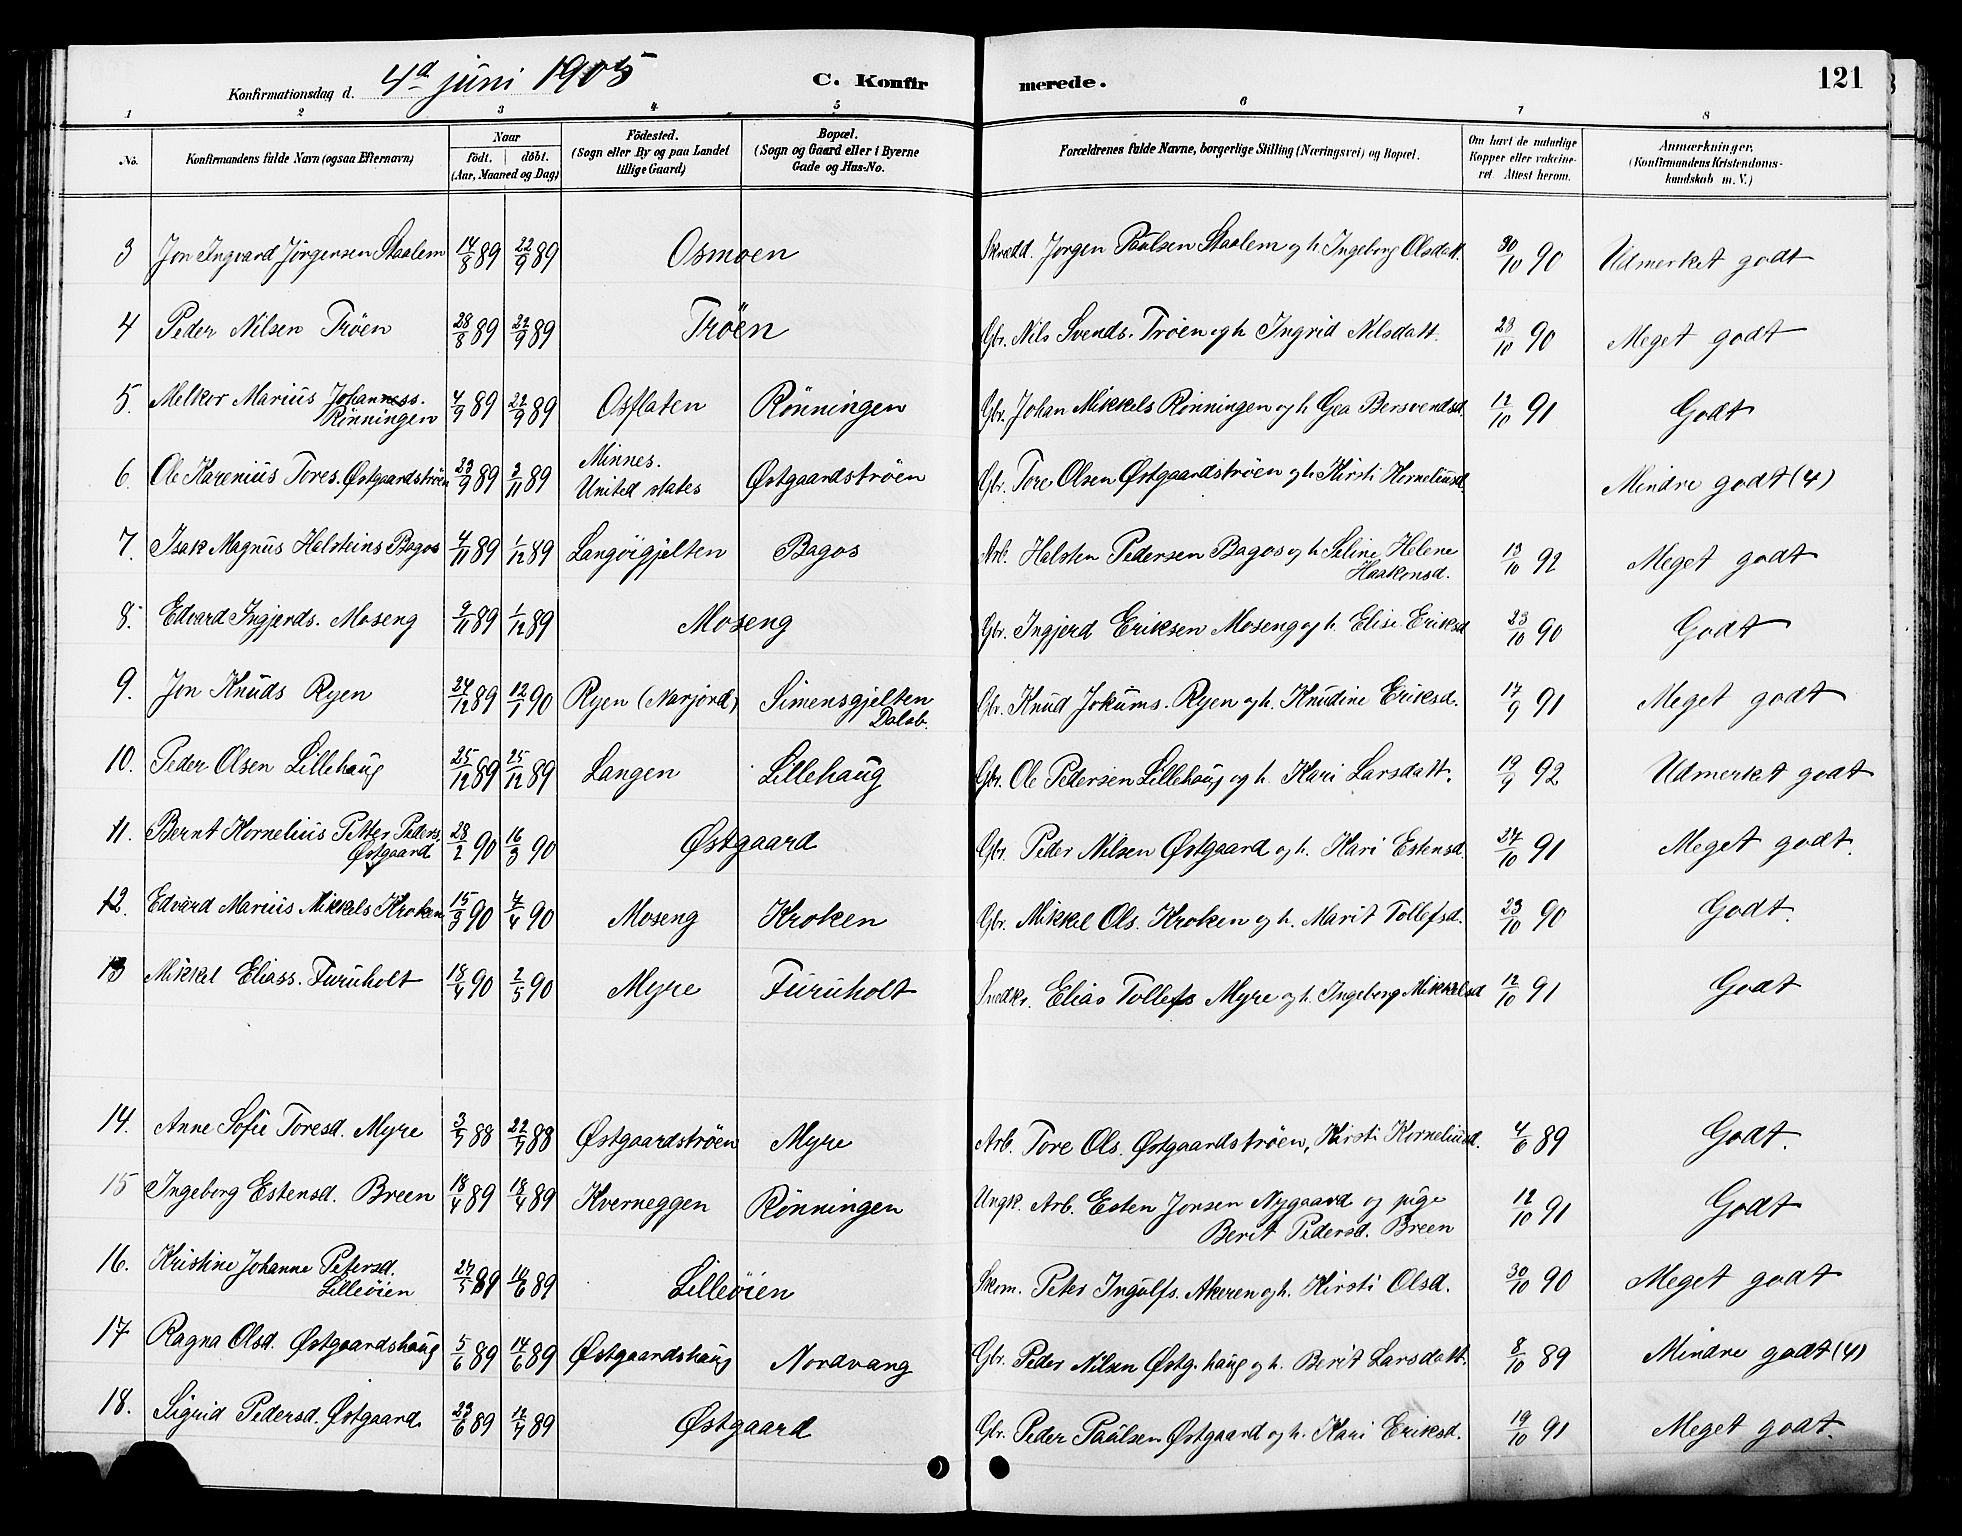 Konfirmationsdag d. 4de juni 1905 C. Konfirmerede. 121
1 2 3 4 5 6 7 8
No. Konfirmandens fulde Navn (ogsaa Efternavn) Naar födt. döbt. (Aar, Maaned og Dag) Födested. (Sogn eller By og paa Landet tillige Gaard) Bopæl. (Sogn og Gaard eller i Byerne Gade og Hus-No. Forældrenes fulde Navne, borgerlige Stilling (Næringsvei) og Bopæl. Om havt de naturlige Kopper eller vakcineret. Attest herom. Anmærkninger. (Konfirmandens Kristendomskundskab m. V.)
3 Jon Ingvard Jörgensen Staalem 14/8 89 22/9 89 Osmoen Skrædd. Jørgen Paulsen Staalem og h. Ingeborg Olsdatt. 30/10 90 Udmerket godt
4 Peder Nilsen Tröen 28/8 89 22/9 89 Tröen Gbr. Nils Svends. Tröen og h Ingrid Nilsdatt. 23/10 90 Meget godt
5. Melkor Marius Johanness. Rönningen 4/9 89 22/9 89 Osflaten Rönningen Gbr. Johan Mikkels Rönningen og h Gea Bersvendsd. 12/10 91 Godt
6. Ole Karenius Tores. Østgaardströen 23/9 89 3/11 89 Minnes. United states Østgaardströen Gbr. Tore Olsen Østgaardströen og h. Kirsti Korneliusd. Mindre godt (4)
7. Isak Magnus Halsteins Bagos 4/11 89 1/12 89 Langöigjelten Bagos Arb. Halsten Pedersen Bagos og h Seline Helene Haakonsd. 13/10 92 Meget godt
8. Edvard Ingjerds. Moseng 9/11 89 1/12 89 Moseng Gbr. Ingjerd Eriksen Moseng og h. Elisi Eriksd 23/10 90 Godt
9. Jon Knuds Ryen 24/12 89 12/1 90 Ryen (Narjord) Simensgjelten Dalsb. Gbr. Knud Jokums. Ryen og h. Knudine Eriksd. 17/9 91 Meget godt
10. Peder Olsen Lillehaug 25/12 89 25/12 89 Langen Lillehaug Gbr. Ole Pedersen Lillehaug og h. Kari Larsdatt. 19/9 92 Udmerket godt
11. Bernt Kornelius Petter Peders. Østgaard 28/2 90 16/3 90 Østgaard Gbr. Peder Nilsen Østgaard og h. Kari Estensd. 27/10 91 Meget godt.
12. Edvard Marius Mikkels Kroken 15/3 90 4/4 90 Moseng Kroken Gbr. Mikkel Ols. Kroken og h. Marit Tollefsd. 23/10 90 Godt.
13 Mikkel Eliass. Furuholt 18/4 90 2/5 90 Myre Furuholt Smdkr. Elias Tollefs Myre og h. Ingeborg Mikkelsd 12/10 91 Godt
14. Anne Sofie Toresd. Myre 3/7 88 22/7 88 Østgaardströen Myre Arb. Tore Ols. Østgaardströen, Kirsti Korneliusd. 4/6 89 Godt.
15 Ingeborg Estensd. Breen 18/4 89 18/4 89 Kverneggen Rönningen Ungk. Arb. Esten Jonsen Nygaard og pige Berit Pedersd. Breen 12/10 91 Godt
16. Kristine Johanne Petersd. Lilleöien 27/5 89 10/6 89 Lilleöien Skom. Peter Ingulfs. Akeren og h. Kirsti Olsd. 30/10 90 Meget godt
17 Ragna Olsd. Østgaardshaug 5/6 89 14/6 89 Østgaardshaug Nordvang Gbr. Peder Nilsen Østg. haug og h. Berit Larsdatt. 8/10 89 Mindre godt (4)
18. Sigrid Pedersd. Østgaard 23/6 89 12/7 89 Østgaard Gbr. Peder Paulsen Østgaard og h. Kari Eriksd. 19/10 91 Meget godt.